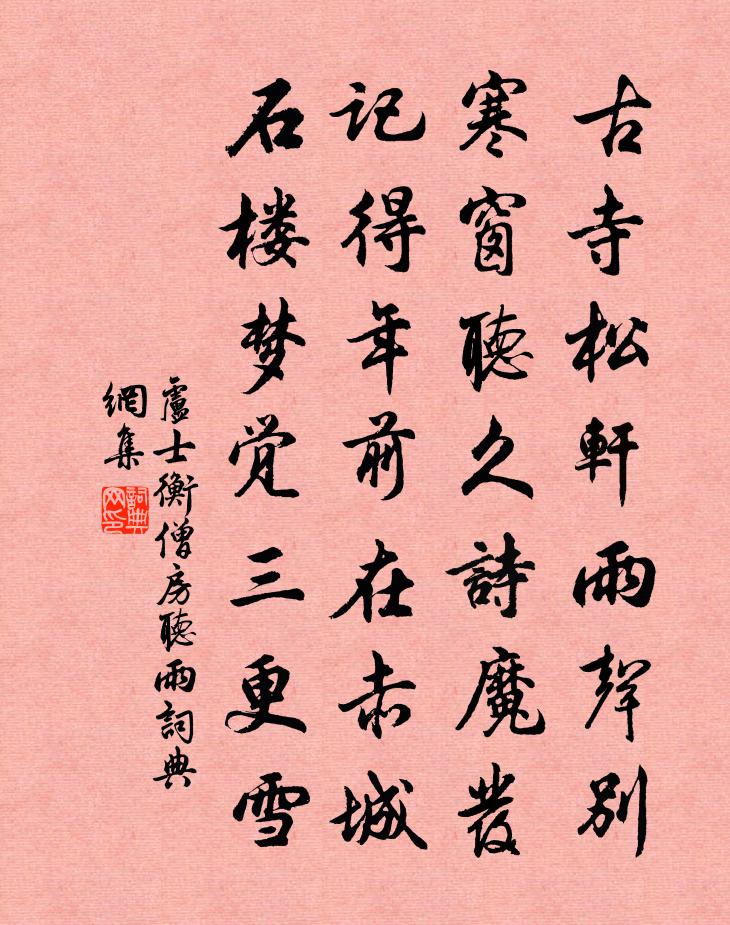 古寺松軒雨聲別
寒窗聽久詩魔發
記得年前在赤城
石楼梦觉三更雪
盧士衡僧房聽雨詞典
網集
詞典網印